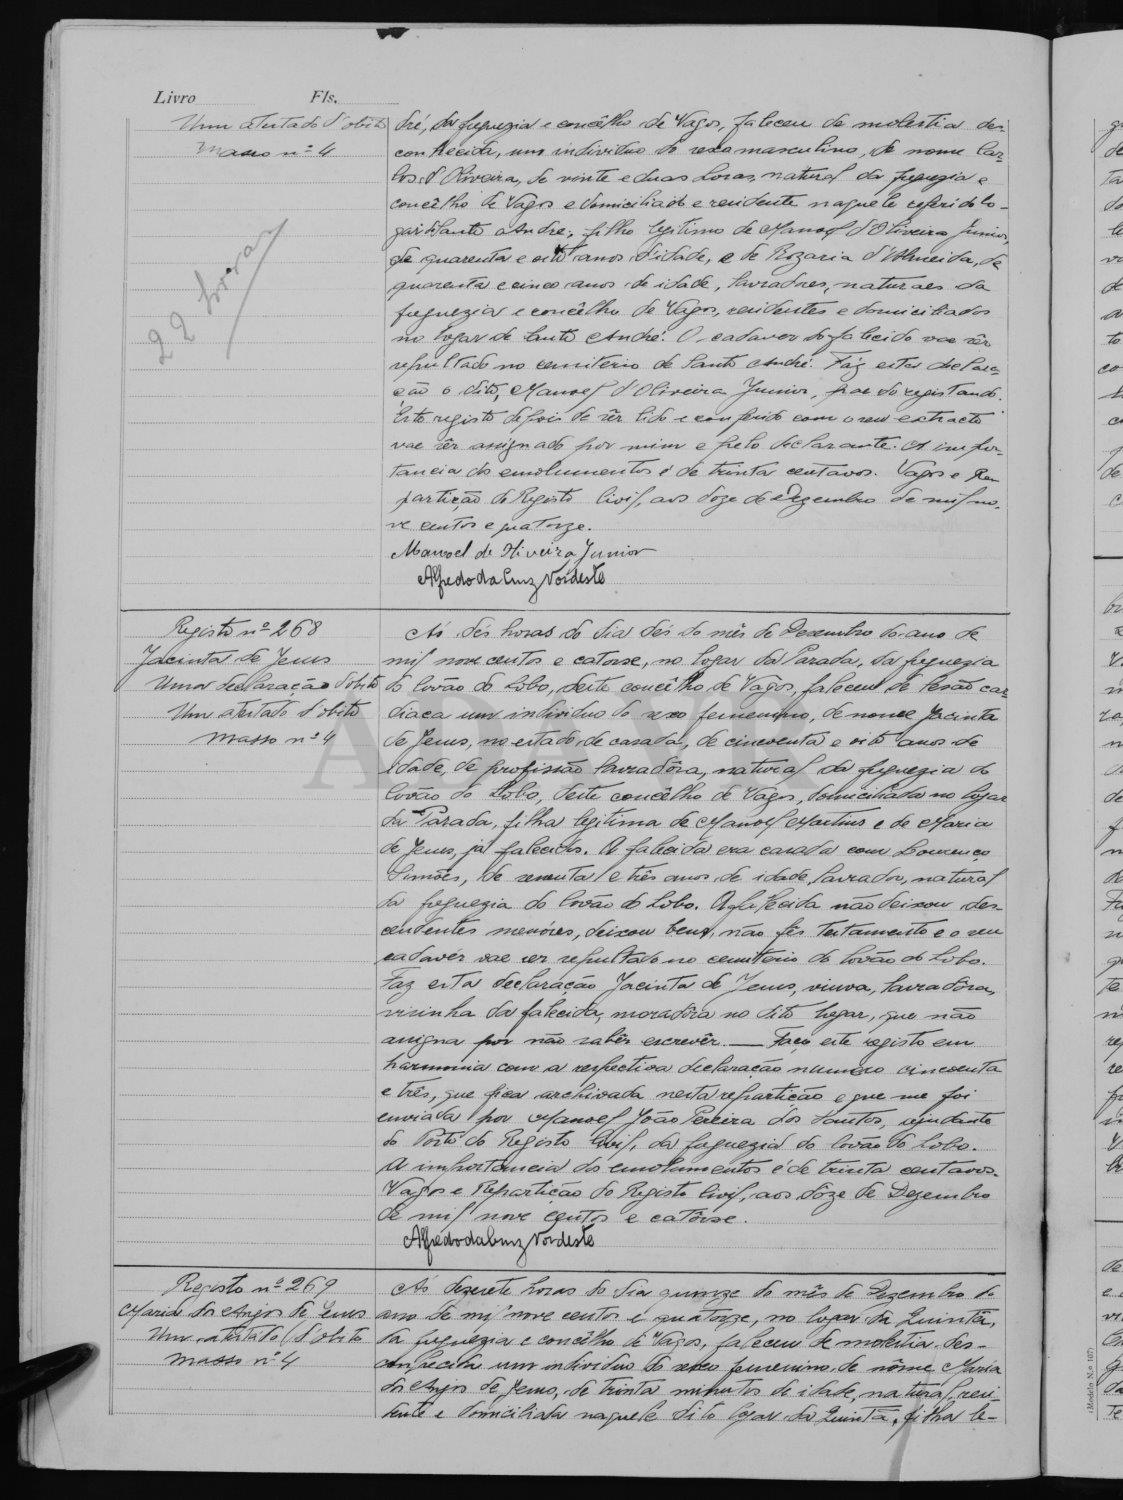 Livro Fls.
Um atestado d'obito
Masso nº 4
22 horas
dré, da freguezia e concêlho de Vagos, faleceu de molestia des-
conhecida, um individuo do sexo masculino, de nome Car-
los d'Oliveira, de vinte e duas horas, natural da freguezia e
concêlho de Vagos e domiciliado e residente naquele referido lo-
gar Santo André, filho legitimo de Manoel d'Oliveira Junior,
de quarenta e oito anos d'idade, e de Rozaria d'Almeida, de
quarenta e cinco anos de idade, lavradores, naturaes da
freguezia e concêlho de Vagos, residentes e domiciliados
no logar de Santo André. O cadaver do falecido vae sêr
sepultado no cemiterio de Santo André. Fáz esta declara-
ção o dito, Manoel d'Oliveira Junior, pae do registando.
Este registo depois de sêr lido e conferido com o seu extracto
vae sêr assignado por mim e pelo declarante. A impor-
tancia dos emolumentos é de trinta centavos. Vagos e Re-
partição do Registo Civil, aos doze de Dezembro de mil no-
ve centos e quatorze.
Manoel de Oliveira Junior
Alfredo da Cruz Nordeste
Registo nº 268
Jacinta de Jesus
Uma declaração d'obito
Um atestado d'obito
Masso nº 4
Ás dés horas do dia dés do mês de Dezembro do ano de
mil nove centos e catorse, no logar da Parada, da freguezia
do Covão do Lobo, deste concêlho de Vagos, faleceu de lesão car-
diaca um individuo do sexo femenino, de nome Jacinta
de Jesus, no estado de casada, de cincoenta e oito anos de
idade, de profissão lavradôra, natural da freguezia do
Covão do Lobo, deste concêlho de Vagos, domiciliada no logar
da Parada, filha legitima de Manoel Martins e de Maria
de Jesus, já falecidos. A falecida era casada com Lourenço
Simões, de sessenta e três anos de idade, lavrador, natural
da freguezia do Covão do Lobo. A falecida não deixou des-
cendentes menóres, deixou bens, não fês testamento e o seu
cadaver vae ser sepultado no cemiterio do Covão do Lobo.
Faz esta declaração Jacinta de Jesus, viuva, lavradôra,
visinha da falecida, moradôra no dito logar, que não
assigna por não sabêr escrevêr. — Faço este registo em
harmonia com a respectiva declaração numero cincoenta
e três, que fica archivada nesta repartição e que me foi
enviada por Manoel João Pereira dos Santos, ajudante
do Posto do Registo Civil, da freguezia do Covão do Lobo.
A importancia dos emolumentos é de trinta centavos.
Vagos e Repartição do Registo Civil, aos dôze de Dezembro
de mil nove centos e catôrse.
Alfredo da Cruz Nordeste
Registo nº 269
Maria dos Anjos de Jesus
Um atestado d'obito
Masso nº 4
Ás dezesete horas do dia quinze do mês de Dezembro do
ano de mil nove centos e quatorze, no logar da Quintã,
da freguezia e concêlho de Vagos, faleceu de molestia des-
conhecida um individuo do sexo femenino, de nôme Maria
dos Anjos de Jesus, de trinta minutos de idade, natural, resi-
dente e domiciliada naquele dito logar da Quintã, filha le-